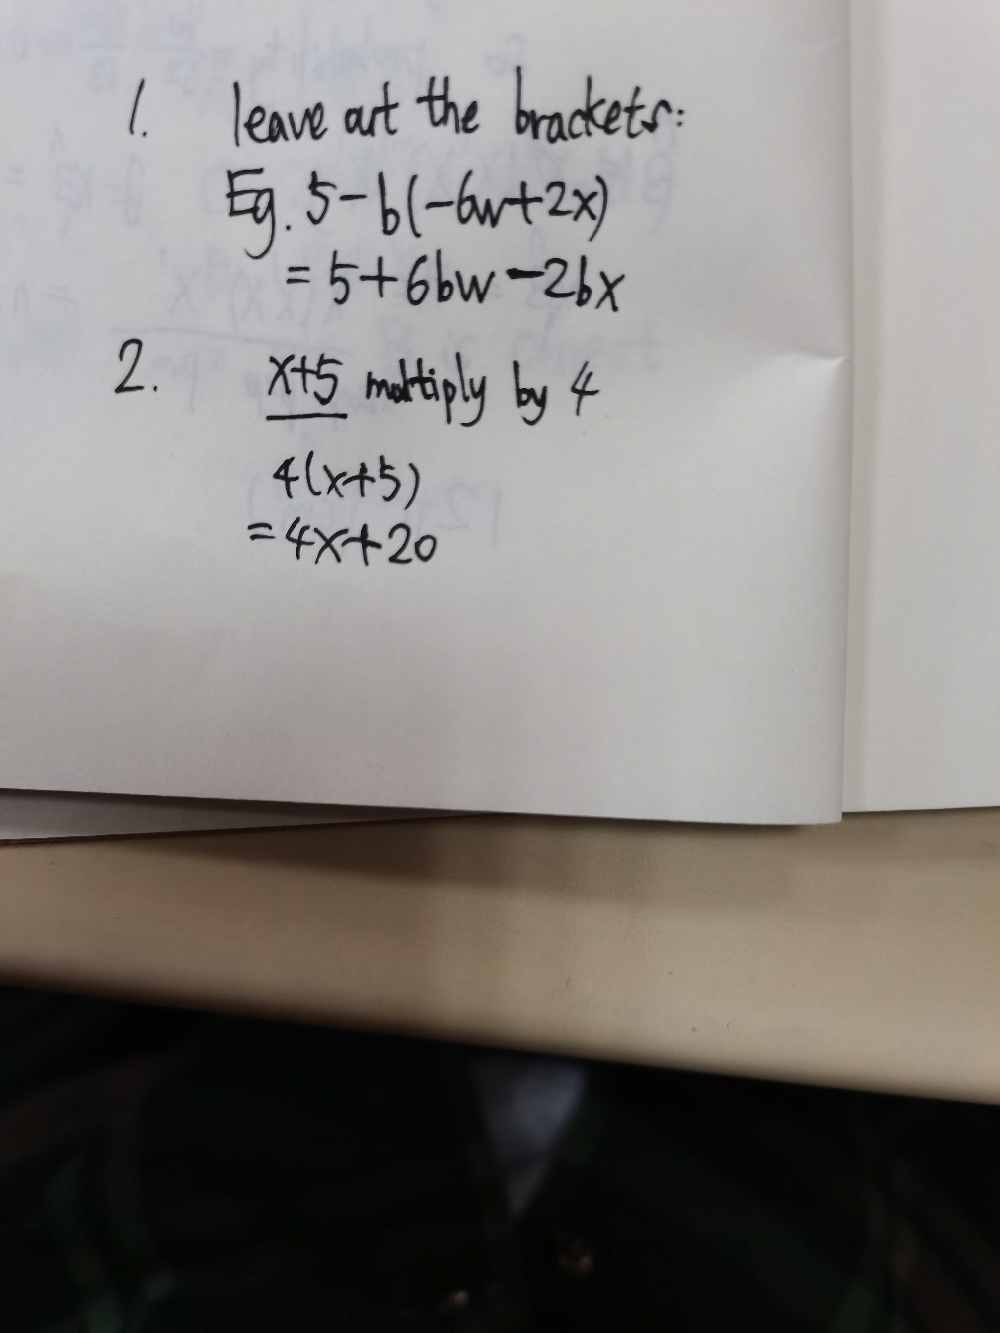 1. leave out the brackets:
Eg. 5-b(-6w+2x)
= 5+6bw-2bx
2. x+5 multiply by 4
4(x+5)
=4x+20